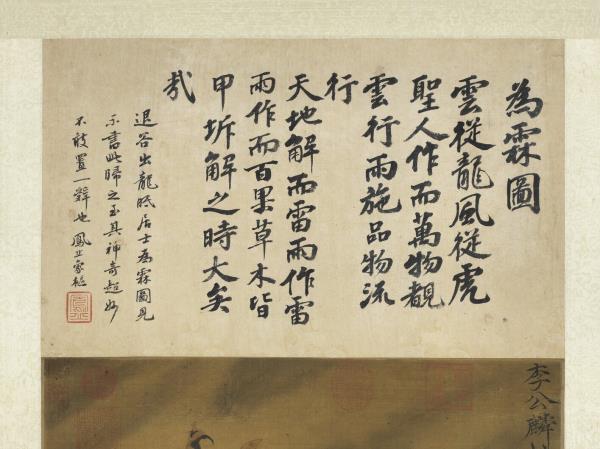 為霖圖
雲從龍風從虎
聖人作而萬物覩
雲行雨施品物流
行
天地解而雷雨作雷
雨作而百果草木皆
甲坼解之時大矣
哉
退谷出龍眠居士為霖圖見
示書此歸之至其神奇超妙
不敢置一辭也
李公麟